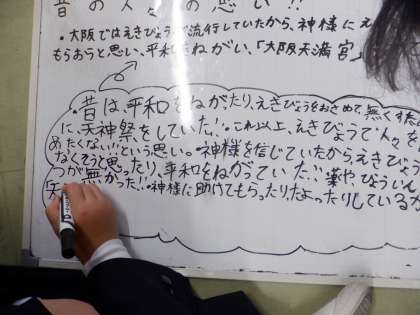 昔の人々の思い!!
・大阪ではえきびょうが流行していたから、神様にえ
もらおうと思い、平和をねがい、「大阪天満宮」
・昔は、平和をねがたり、えきびょうをおさめて、無くすた
に、天神祭をしていた!・これ以上、えきびょうで人々を
めたくない!!という思い。・神様を信じていたから、えきびょ
なくそうと思ったり、平和をねがっていた!!薬やびょういん
つが無かった!!・神様に助けてもらったり、たよったりしているか